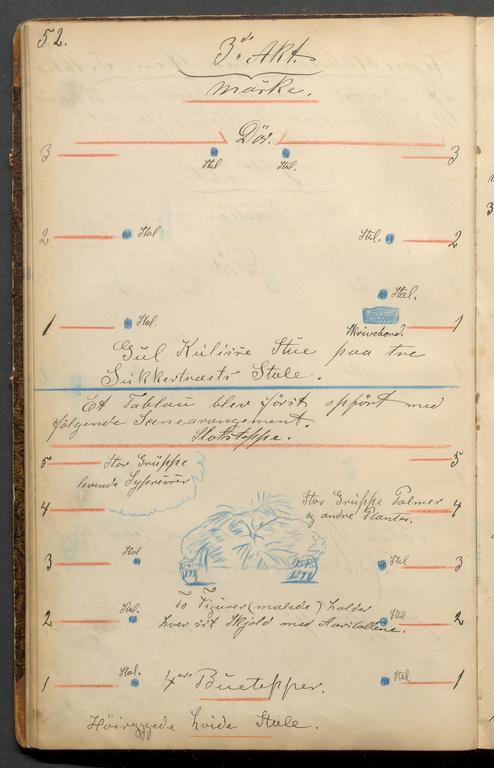 52.
3die Akt.
mørke.
Dör.
3 Stol Stol. 3
2 Stol Stol. 2
Stol.
1 Stol. Skrivebord. 1
Gul Kulisse Stue paa tre
Sukkertræets Stole.
Et Tablau blev først opført med
følgende Scenearangement.
Slotsteppe.
5 Stor Gruppe 5
levende
4 Stor Gruppe Palmer 4
og andre Planter.
3 Stol Stol 3
To Figurer (malede) holder
2 Stol. Stol 2
hver sit Skjold med Aarstallene.
1 Stol. 4de Buetepper. Stol 1
Höiryggede hvide Stole.